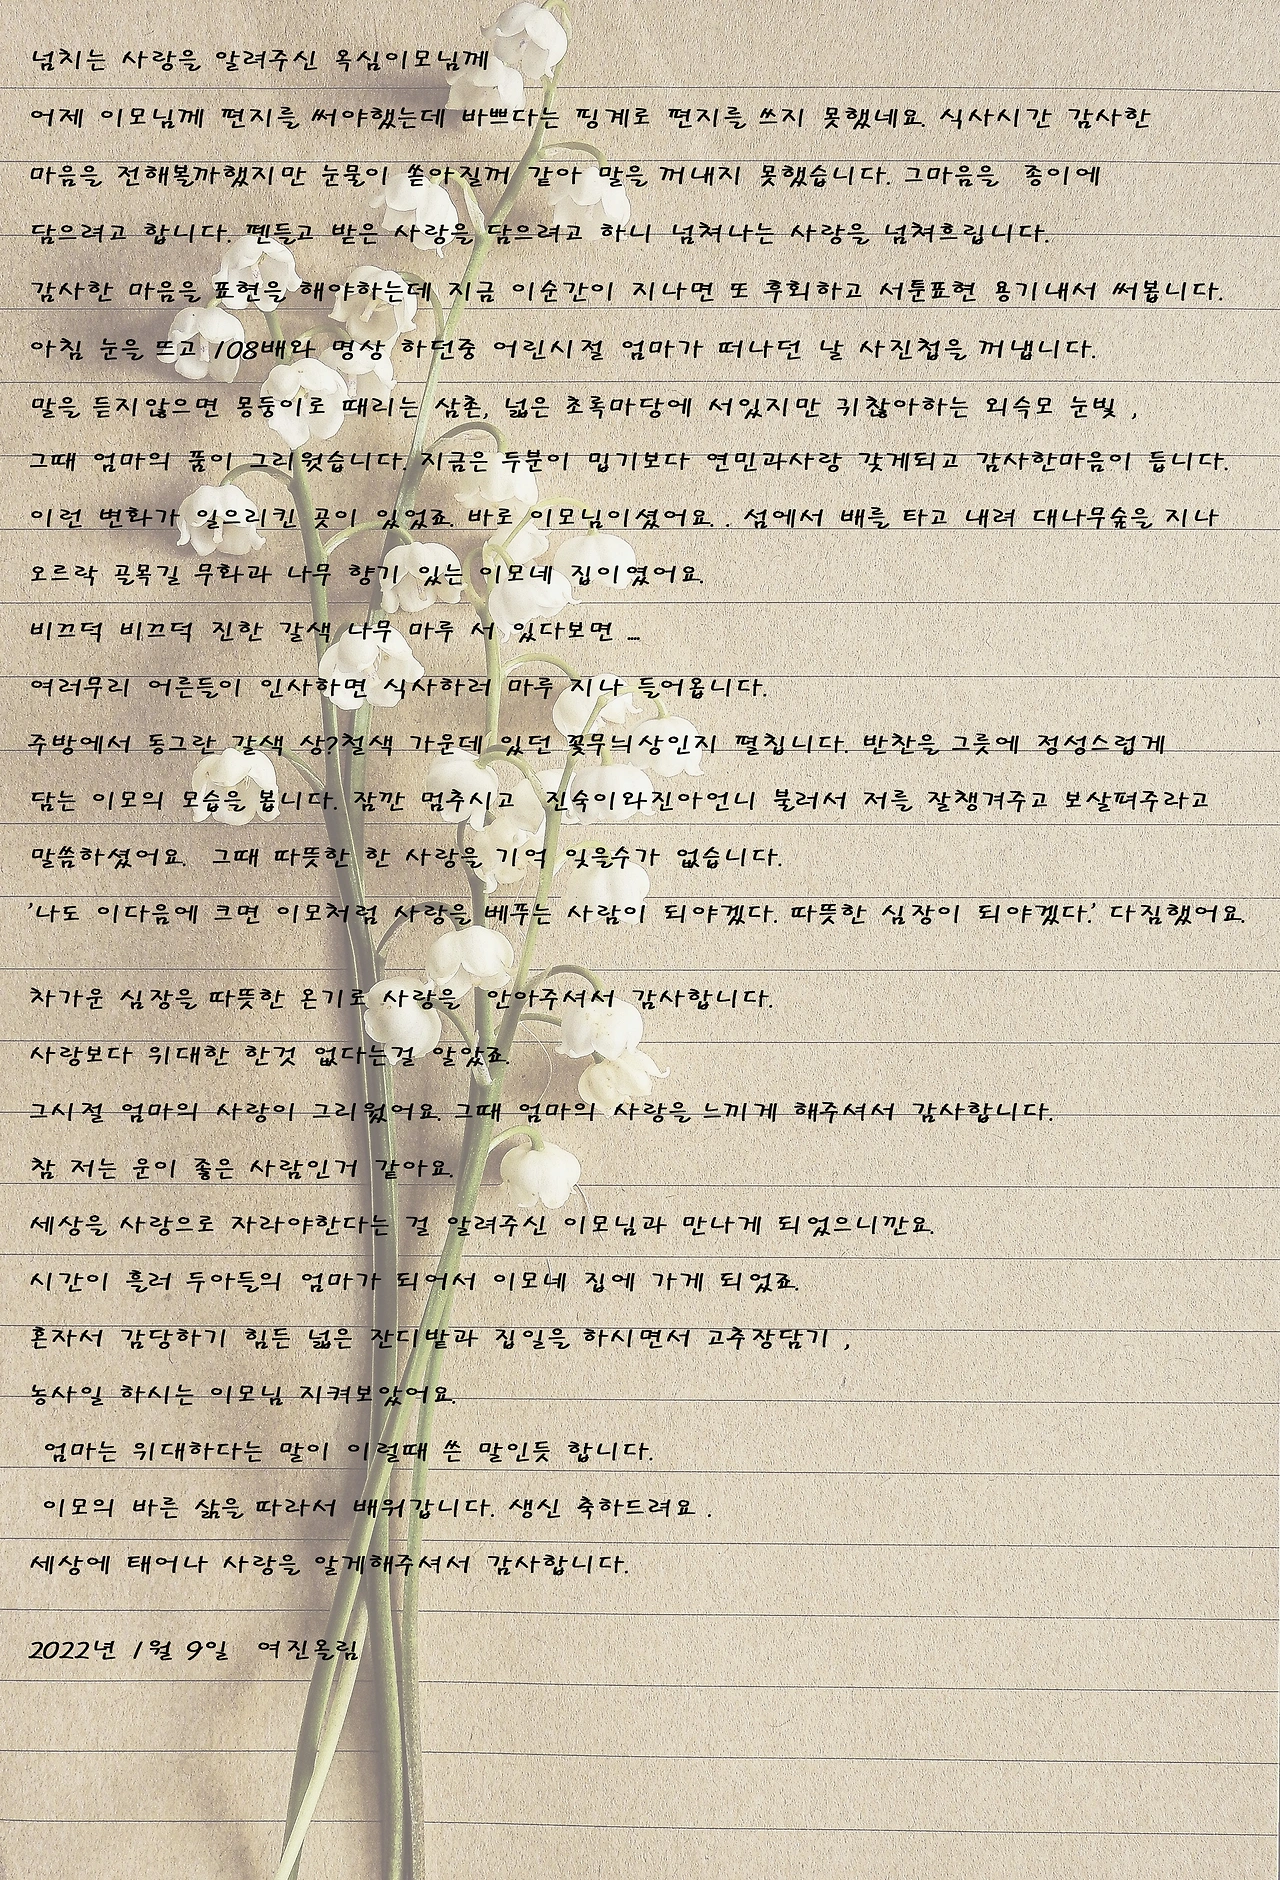 넘치는 사랑을 알려주신 옥심이모님께
어제 이모님께 편지를 써야했는데 바쁘다는 핑계로 편지를 쓰지 못했네요. 식사시간 감사한
마음을 전해볼까했지만 눈물이 쏟아질꺼 같아 말을 꺼내지 못했습니다. 그마음을 종이에
담으려고 합니다. 펜들고 받은 사랑을 담으려고 하니 넘쳐나는 사랑을 넘쳐흐립니다.
감사한 마음을 표현을 해야하는데 지금 이순간이 지나면 또 후회하고 서툰표현 용기내서 써봅니다.
아침 눈을 뜨고 108배와 명상 하던중 어린시절 엄마가 떠나던 날 사진첩을 꺼냅니다.
말을 듣지않으면 몽둥이로 때리는 삼촌, 넓은 초록마당에 서있지만 귀찮아하는 외숙모 눈빛 ,
그때 엄마의 품이 그리웟습니다. 지금은 두분이 밉기보다 연민과사랑 갖게되고 감사한마음이 듭니다.
이런 변화가 일으리킨 곳이 있었죠. 바로 이모님이셨어요. . 섬에서 배를 타고 내려 대나무숲을 지나
오르락 골목길 무화과 나무 향기 있는 이모네 집이였어요.
비끄덕 비끄덕 진한 갈색 나무 마루 서 있다보면 ...
여러무리 어른들이 인사하면 식사하러 마루 지나 들어옵니다.
주방에서 동그란 갈색 상?철색 가운데 있던 꽃무늬상인지 펼칩니다. 반찬을 그릇에 정성스럽게
담는 이모의 모습을 봅니다. 잠깐 멈추시고 진숙이와진아언니 불러서 저를 잘챙겨주고 보살펴주라고
말씀하셨어요. 그때 따뜻한 한 사랑을 기억 잊을수가 없습니다.
'나도 이다음에 크면 이모처럼 사랑을 베푸는 사람이 되야겠다. 따뜻한 심장이 되야겠다.' 다짐했어요.
차가운 심장을 따뜻한 온기로 사랑을 안아주셔서 감사합니다.
사랑보다 위대한 한것 없다는걸 알았죠.
그시절 엄마의 사랑이 그리웠어요. 그때 엄마의 사랑을 느끼게 해주셔서 감사합니다.
참 저는 운이 좋은 사람인거 같아요.
세상을 사랑으로 자라야한다는 걸 알려주신 이모님과 만나게 되었으니깐요.
시간이 흘러 두아들의 엄마가 되어서 이모네 집에 가게 되었죠.
혼자서 감당하기 힘든 넓은 잔디밭과 집일을 하시면서 고추장담기 ,
농사일 하시는 이모님 지켜보았어요.
엄마는 위대하다는 말이 이럴때 쓴 말인듯 합니다.
이모의 바른 삶을 따라서 배워갑니다. 생신 축하드려요 .
세상에 태어나 사랑을 알게해주셔서 감사합니다.
2022년 1월 9일 여진올림